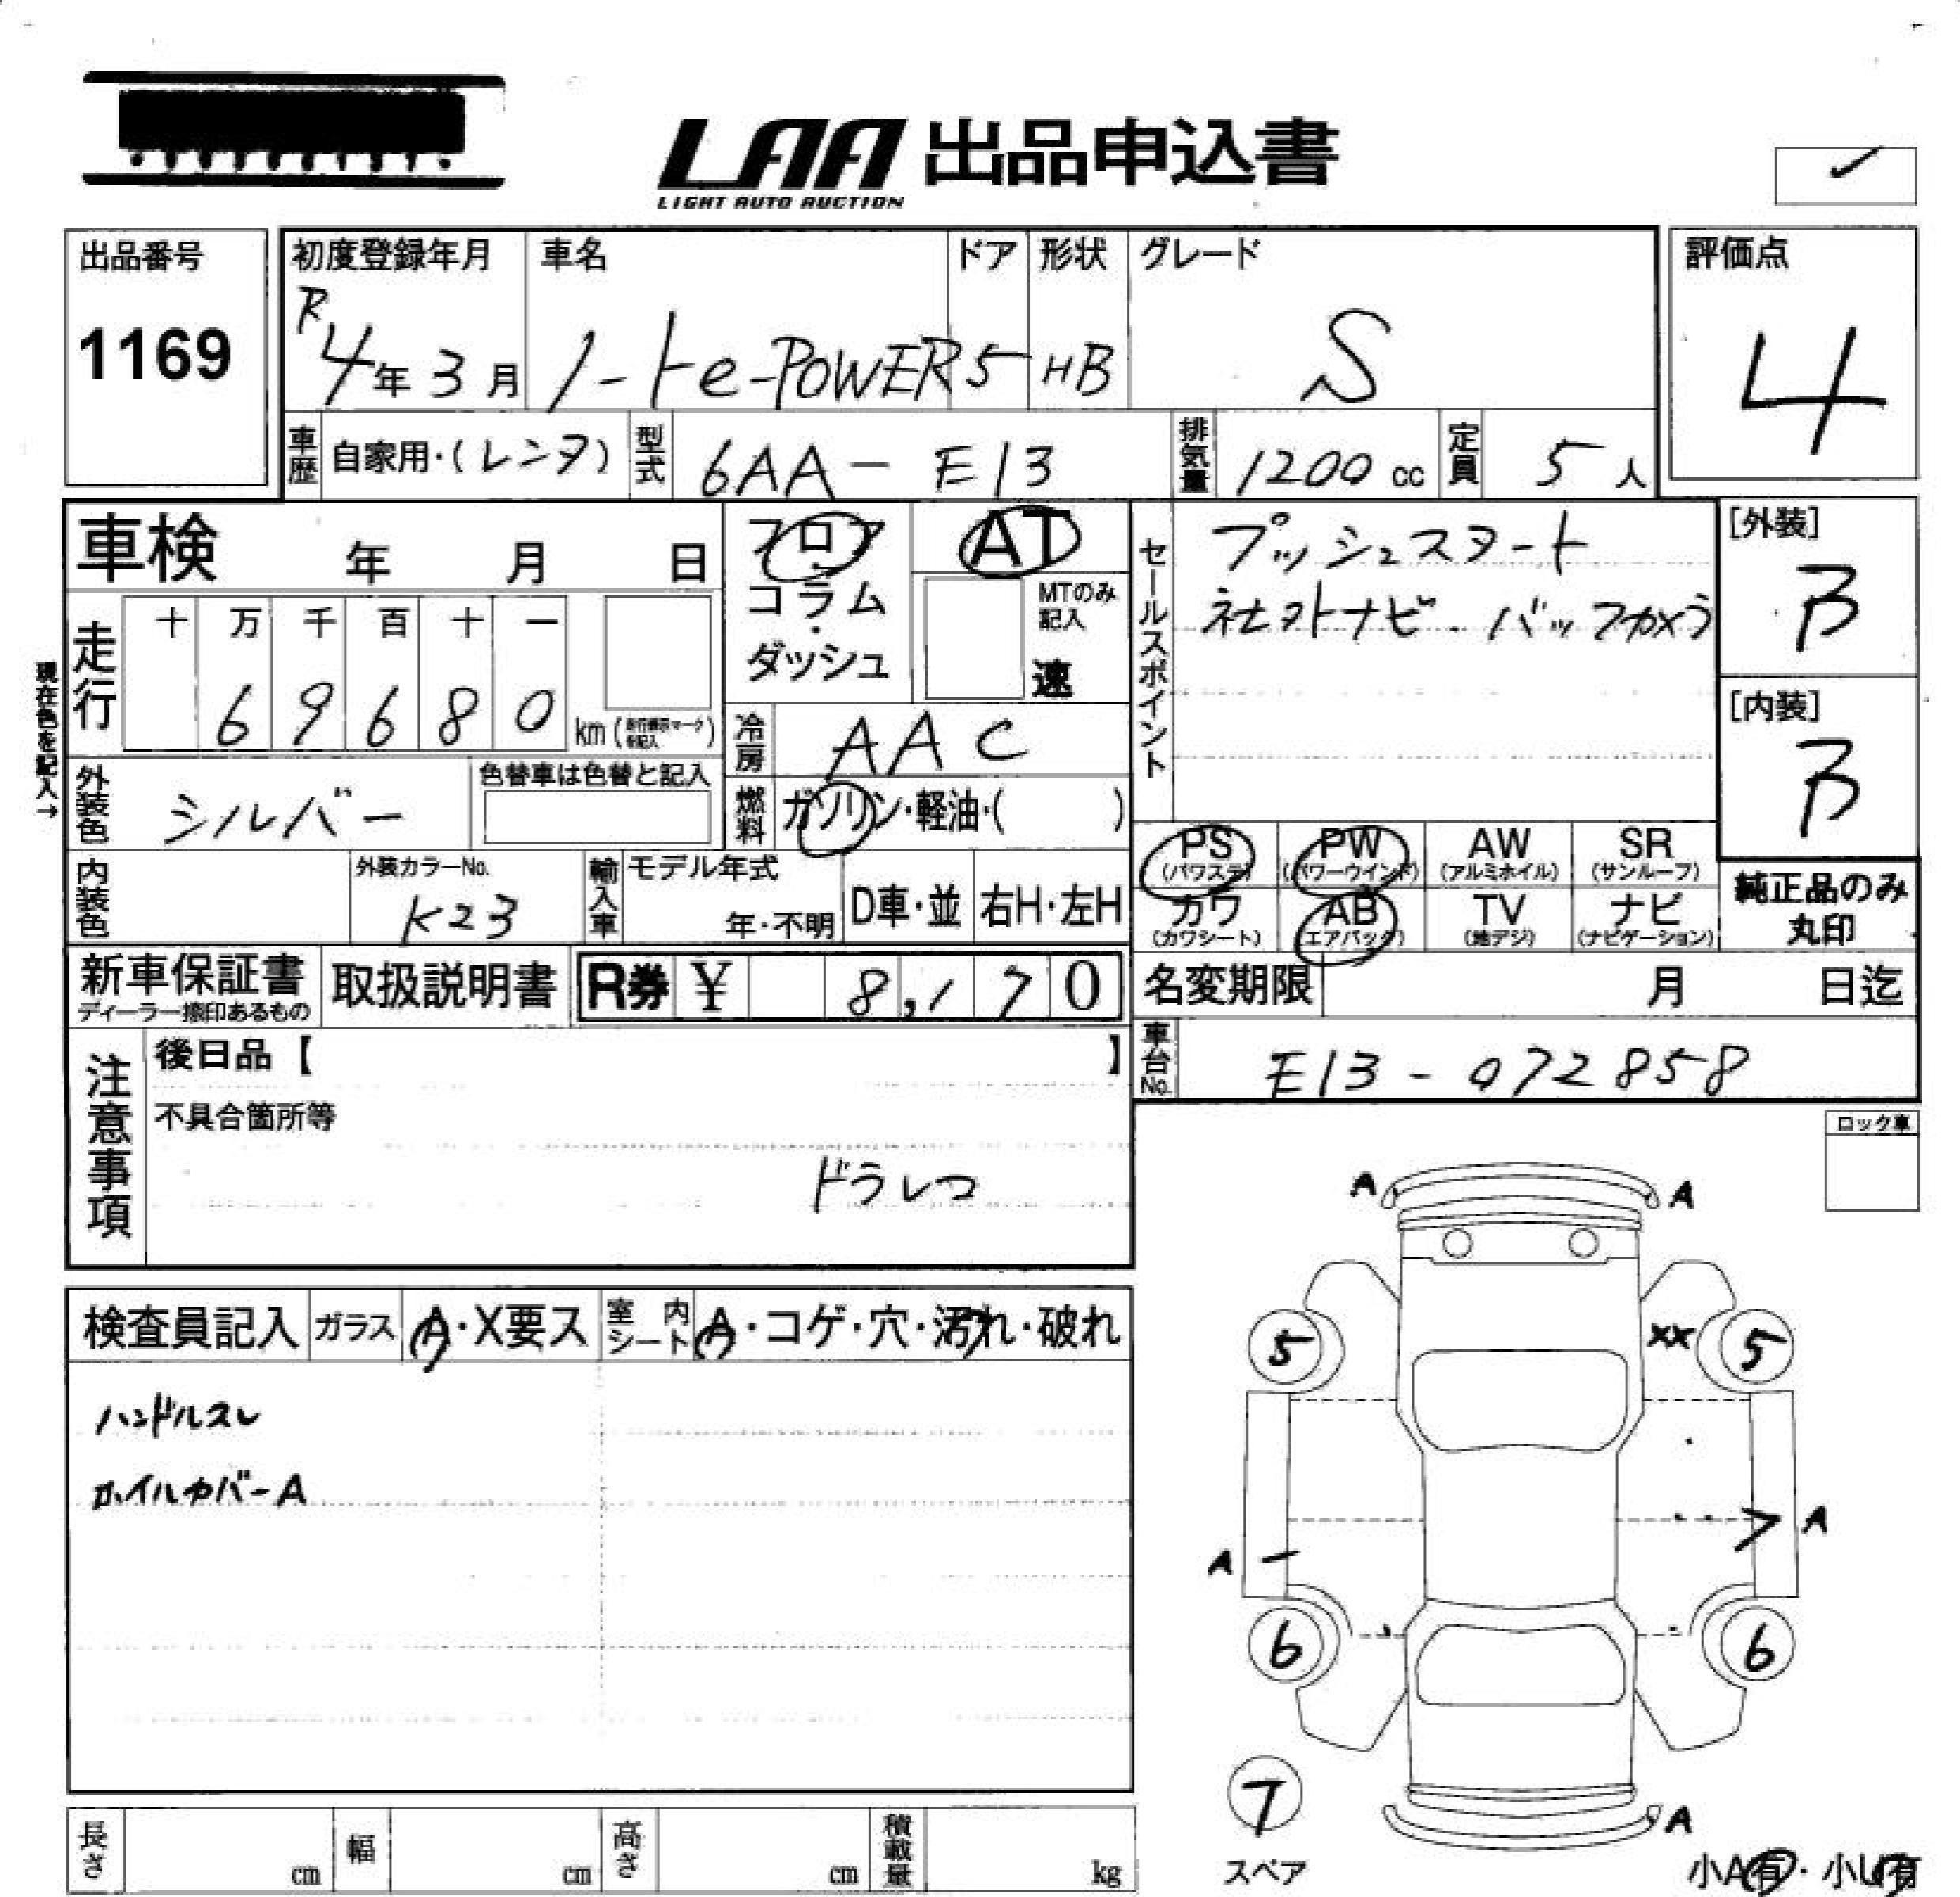 LAA 出品申込書
LIGHT AUTO AUCTION
出品番号
1169
初度登録年月
R4年3月
車名
ノートe-POWER
ドア
5
形状
HB
グレード
S
評価点
4
車歴
自家用・(レンタ)
型式
6AA-E13
排気量
1200cc
定員
5人
車検 年 月 日
フロア
コラム
・
ダッシュ
AT
MTのみ
記入
速
セールスポイント
プッシュスタート
社外ナビ・バックカメラ
[外装]
B
[内装]
B
現在色を記入→
走行
十 万 千 百 十 一
6 9 6 8 0
km(走行標示マークを記入)
冷房
AAC
外装色
シルバー
色替車は色替と記入
燃料
ガソリン・軽油・( )
PS
(パワステ)
PW
(パワーウインド)
AW
(アルミホイル)
SR
(サンルーフ)
カワ
(カワシート)
AB
(エアバック)
TV
(地デジ)
ナビ
(ナビゲーション)
純正品のみ
丸印
内装色
外装カラーNo.
K23
輸入車
モデル年式
年・不明
D車・並
右H・左H
新車保証書
ディーラー捺印あるもの
取扱説明書
R券 ¥ 8,170
名変期限 月 日迄
車台No.
E13-072858
注意事項
後日品【 】
不具合箇所等
ドラレコ
ロック車
検査員記入
ガラス
A・X要ス
室内シート
A・コゲ・穴・汚れ・破れ
ハンドルスレ
ホイルカバーA
A A
5 XX 5
A A
6 6
7
スペア
A
小A有・小U有
長さ cm
幅 cm
高さ cm
積載量 kg